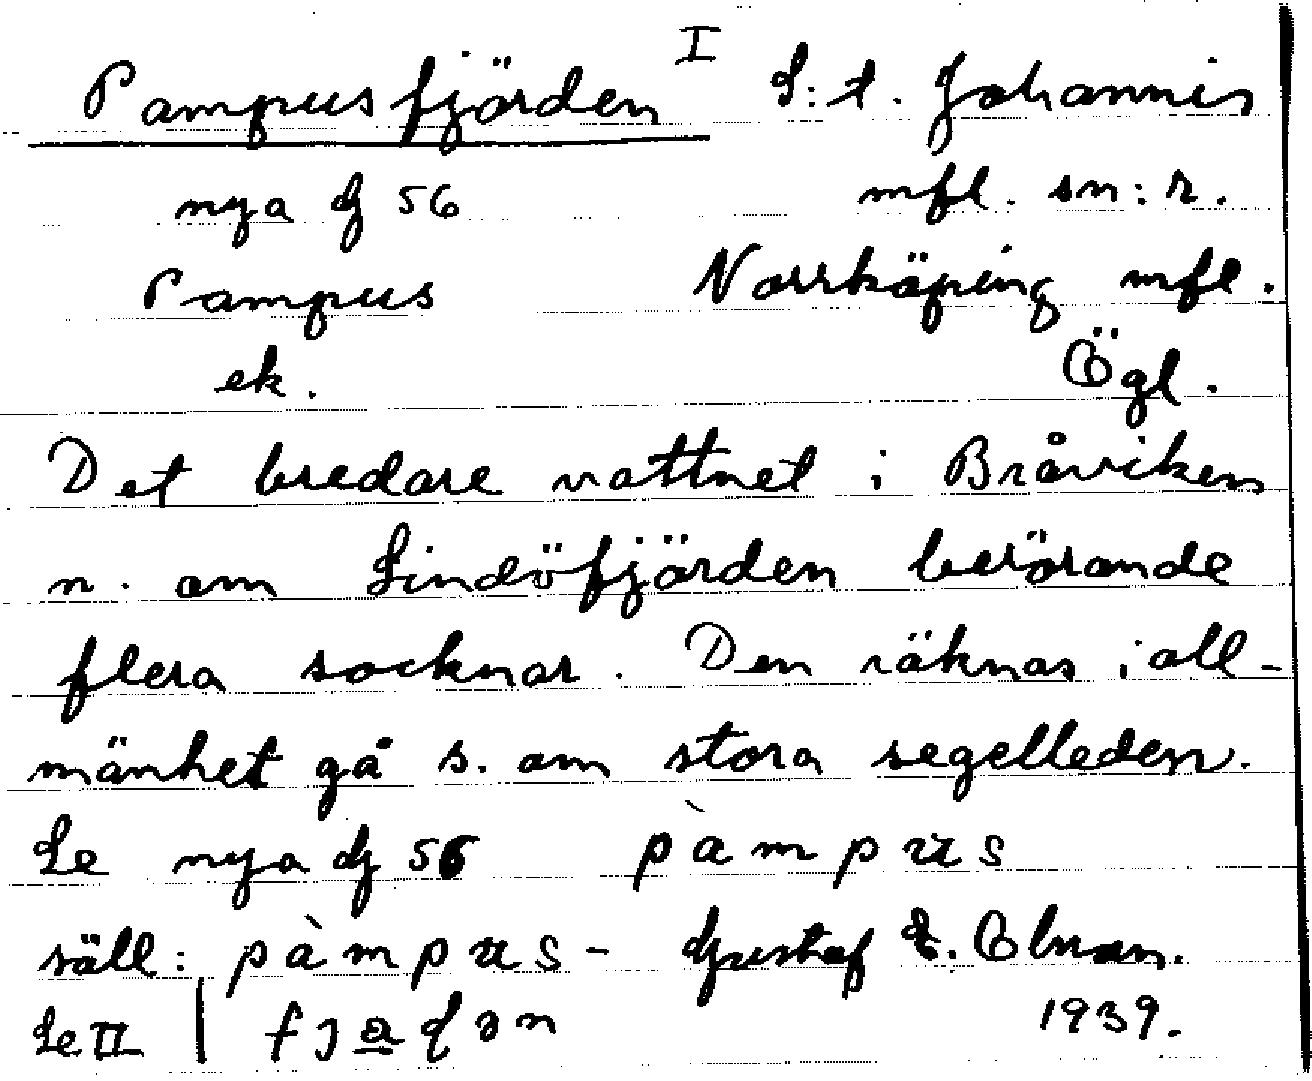 Pampusfjärden I S:t. Johannis
nya G 56 mfl. sn:r.
Pampus Norrköping mfl.
ek. Ögl.
Det bredare vattnet i Bråviken
n. om Lindöfjärden berörande
flera socknar. Den räknas i all-
mänhet gå s. om stora segelleden.
Se nya G 56 pàmpus
säll: pàmpus- Gustaf E. Olman.
Se II | 1939.